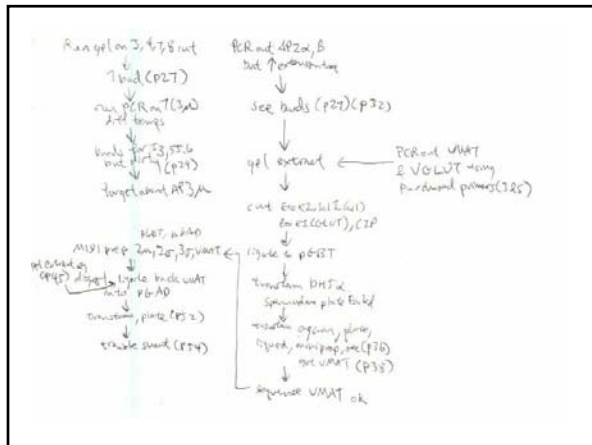 Run gel on 3, 4, 7, 8 cut
7 bad (p27)
run PCR on 7 (3,µ)
diff temps
bands for 
but dirty (p29)
target about AP3,µ
PCR out AP2α, β
but ↑ extension time
see bands (p27)(p32)
gel extract
PCR out VMAT
& VGLUT using
purchased primers
cut
EcoRI(GLUT), CIP
ligate to pGBT
transform DH5α
plate failed
transform again, plate,
liquid, miniprep, see (p36)
got VMAT (p38)
sequence VMAT ok
pGBT, pGAD
MIDI prep 2µ, 2σ, 3σ, VMAT
gel extract
(p45)
ligate back VMAT
into pGAD
transform, plate (p52)
trouble shoot (p54)